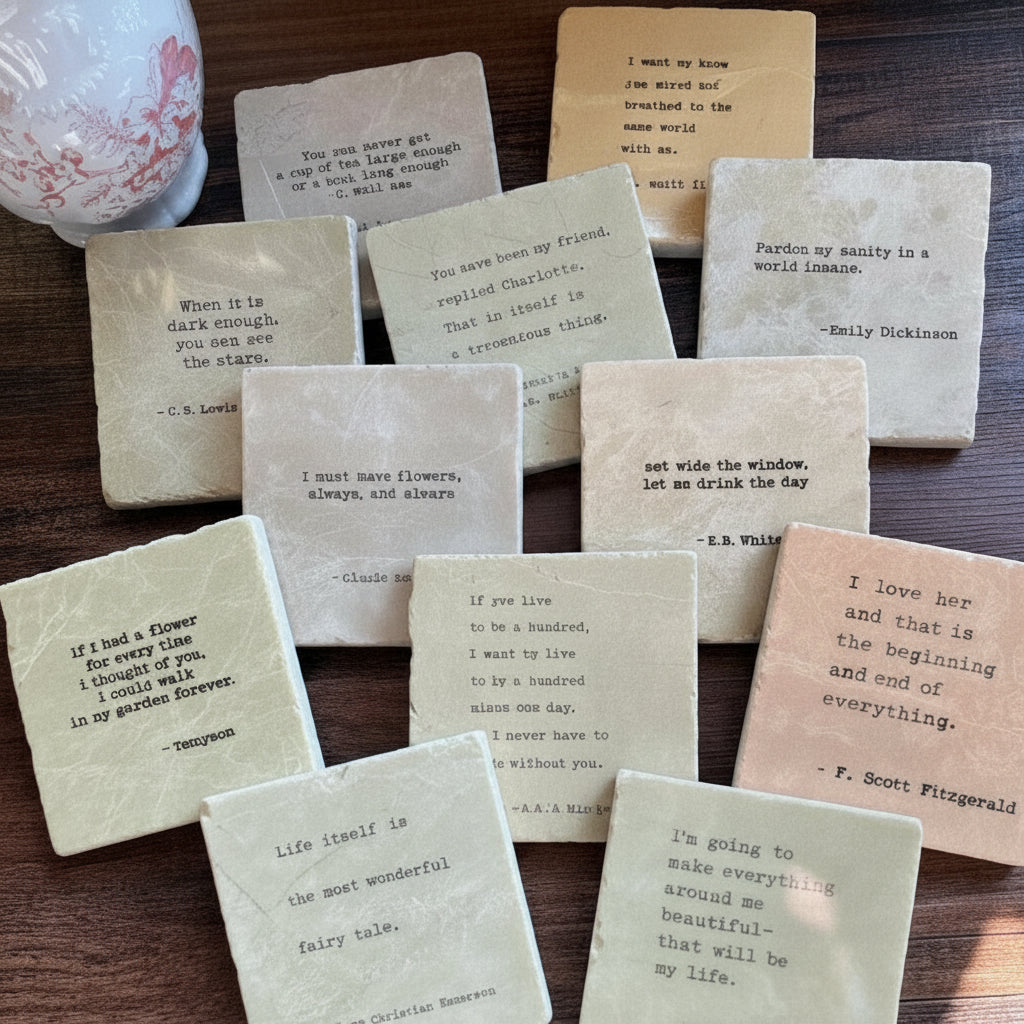 I want my know
breathed to the
same world
with as.
You never get
a cup of tea large enough
or a long enough
You been my friend,
replied Charlotte.
That in itself is
a thing.
Pardon my sanity in a
world insane.
-Emily Dickinson
When it is
dark enough,
you sen see
the stars.
- C.S. Lowis
I must mave flowers,
always, and
set wide the window,
let drink the day
- E.B. White
if I had a flower
for every time
i thought of you,
i could walk
in my garden forever.
- Temyson
If live
to be a hundred,
I want ty live
to a hundred
day.
I never have to
without you.
I love her
and that is
the beginning
and end of
everything.
- F. Scott Fitzgerald
Life itself is
the most wonderful
fairy tale.
Christian
I'm going to
make everything
around me
beautiful-
that will be
my life.